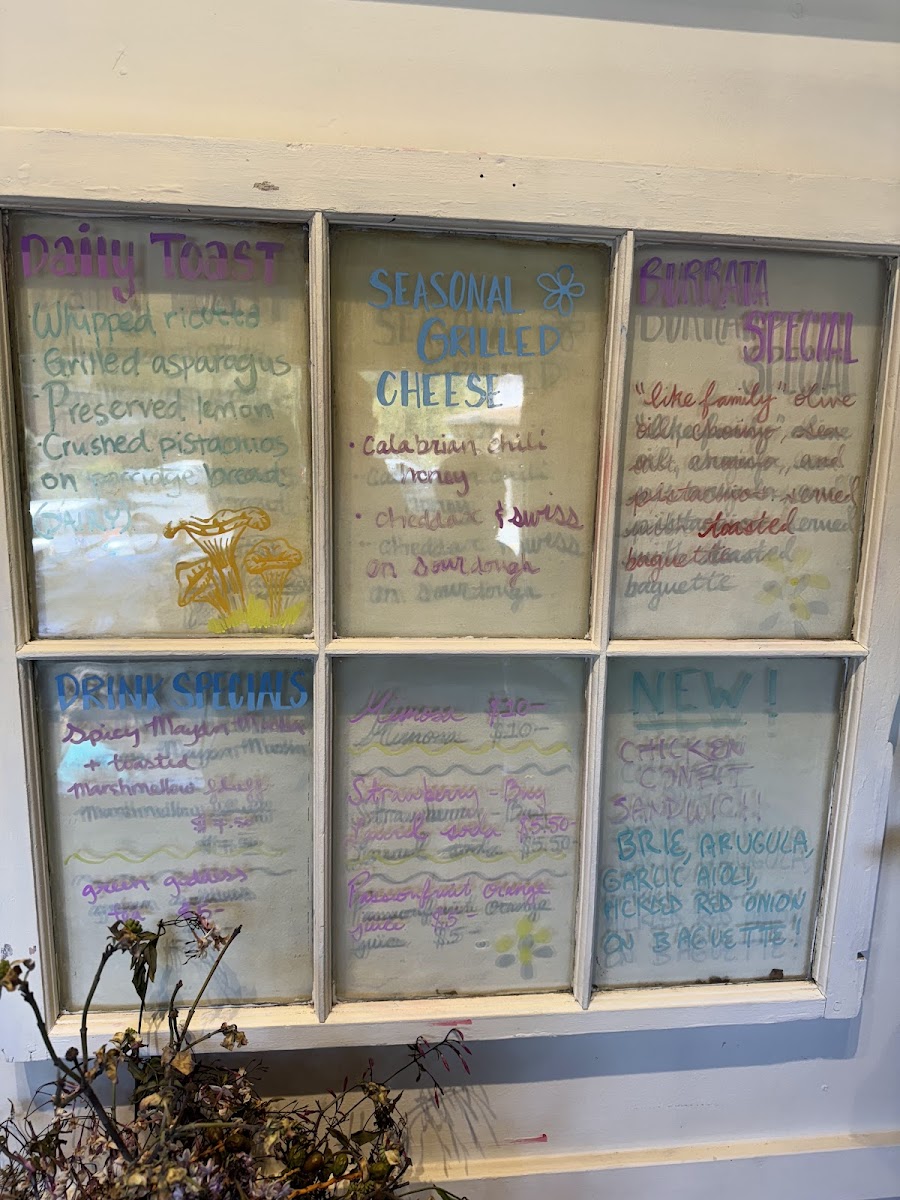 Daily Toast
Whipped ricotta
· Grilled asparagus
· Preserved lemon
· Crushed pistachios
on porridge bread
SEASONAL
GRILLED
CHEESE
· Calabrian chili
honey
· cheddar & swiss
on sourdough
BURRATA
SPECIAL
"like family" olive
and
toasted
baguette
DRINK SPECIALS
Spicy Mayan Mocha
+ toasted
marshmellow
$7.50
green goddess
tea
Mimosa $10-
Strawberry - Bay
soda $5.50
Passionfruit orange
juice $5-
NEW!
CHICKEN
CONFIT
SANDWICH!
BRIE, ARUGULA,
GARLIC AIOLI,
PICKLED RED ONION
ON BAGUETTE!